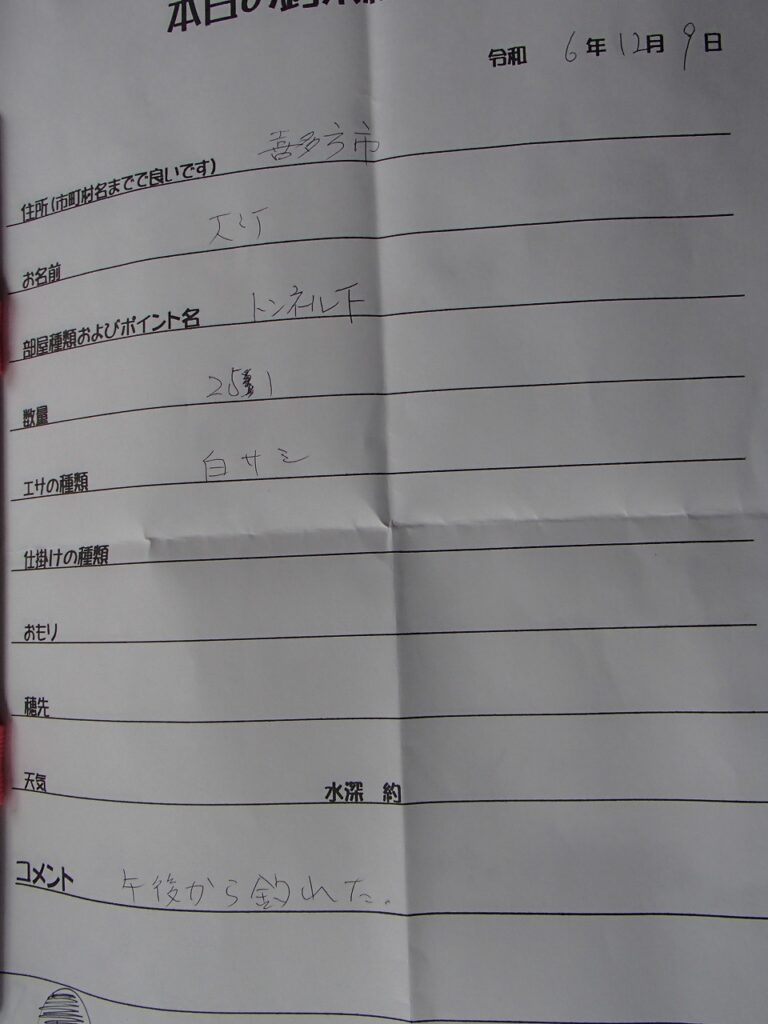 本日の釣果
令和 6年12月9日
住所(市町村名までで良いです) 喜多方市
お名前
部屋種類およびポイント名 トンネル下
数量 251
エサの種類 白サシ
仕掛けの種類
おもり
穂先
天気 水深 約
コメント 午後から釣れた.